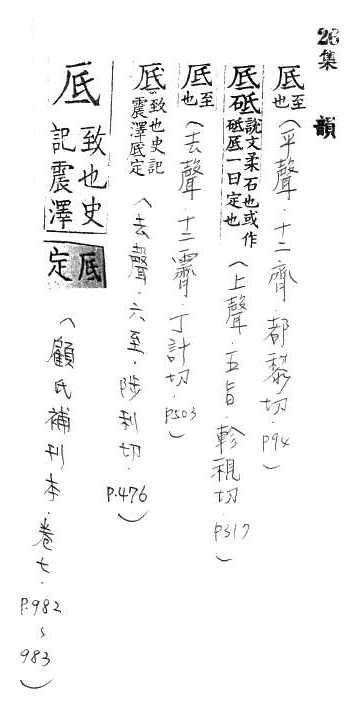 26集 韻
厎至也(平聲.十二齊.都黎切.P94)
厎砥說文柔石也或作砥厎一曰定也(上聲.五旨.軫視切.P317)
厎至也(去聲.十二霽.丁計切.P503)
厎致也史記震澤厎定(去聲.六至.陟利切.P.476)
厎致也史記震澤厎定(顧氏補刊本.卷七.P.982~983)